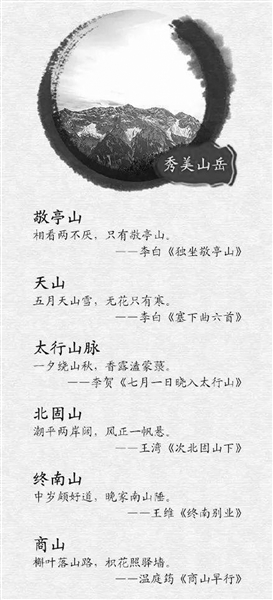 秀美山岳
敬亭山
相看两不厌，只有敬亭山。
——李白《独坐敬亭山》
天山
五月天山雪，无花只有寒。
——李白《塞下曲六首》
太行山脉
一夕绕山秋，香露溘蒙菉。
——李贺《七月一日晓入太行山》
北固山
潮平两岸阔，风正一帆悬。
——王湾《次北固山下》
终南山
中岁颇好道，晚家南山陲。
——王维《终南别业》
商山
槲叶落山路，枳花照驿墙。
——温庭筠《商山早行》